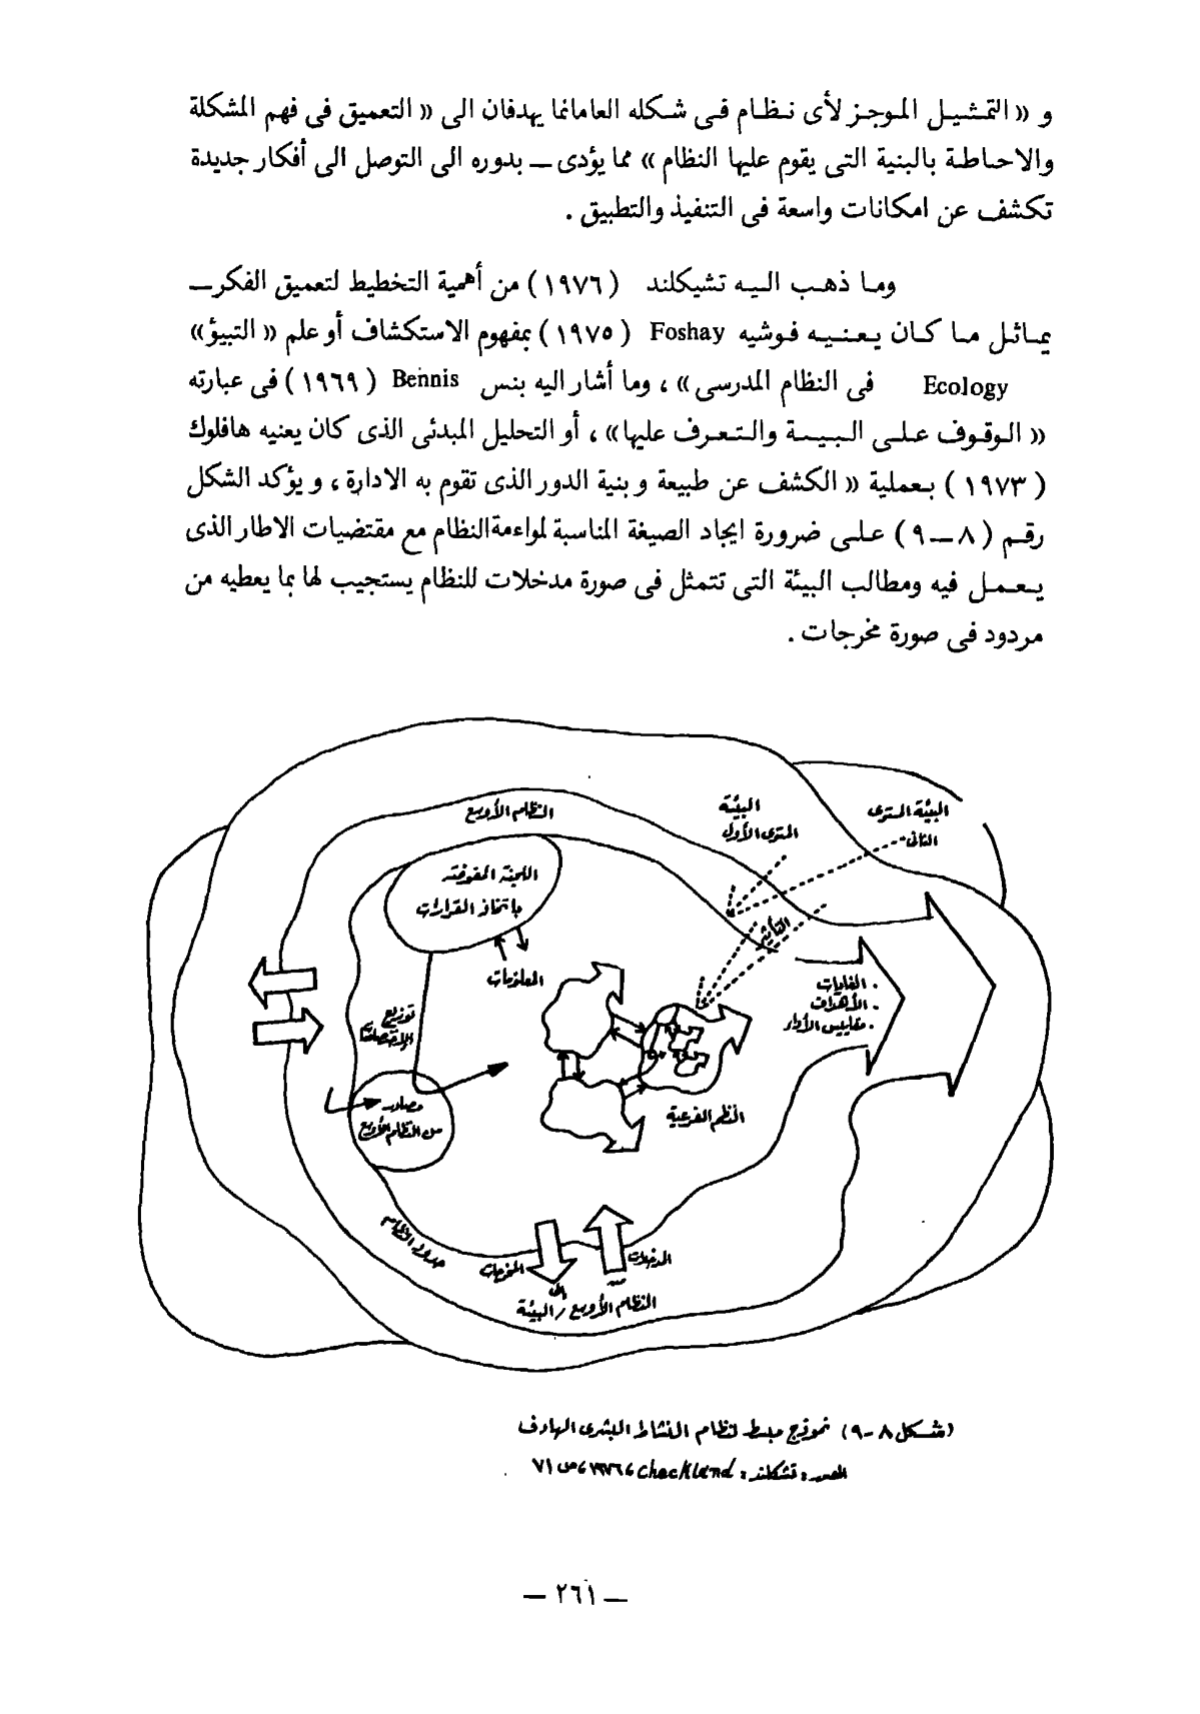 و « التمثيل الموجز لأى نظام فى شكله العامانما يهدفان الى « التعميق فى فهم المشكلة
والاحاطة بالبنية التى يقوم عليها النظام » مما يؤدى ــ بدوره الى التوصل الى أفكار جديدة
تكشف عن امكانات واسعة فى التنفيذ والتطبيق .
وما ذهب اليه تشيكلند ( ١٩٧٦ ) من أهمية التخطيط لتعميق الفكر ــ
يماثل ما كان يعنيه فوشيه Foshay ( ١٩٧٥ ) بمفهوم الاستكشاف أو علم « التبيؤ »
Ecology فى النظام المدرسى » ، وما أشار اليه بنس Bennis ( ١٩٦٩ ) فى عبارته
« الوقوف على البيـة والتعرف عليها» ، أو التحليل المبدئى الذى كان يعنيه هافلوك
( ١٩٧٣ ) بعملية « الكشف عن طبيعة وبنية الدور الذى تقوم به الادارة ، و يؤكد الشكل
رقم ( ٨ــ٩ ) على ضرورة ايجاد الصيغة المناسبة لمواءمةالنظام مع مقتضيات الاطار الذى
يعمل فيه ومطالب البيئة التى تتمثل فى صورة مدخلات للنظام يستجيب لها بما يعطيه من
مردود فى صورة مخرجات .
البيئة المستوى
الثانى
البيئة
المستوى الأول
النظام الأوسع
اللجنة المفوضة
باتخاذ القرارات
التأثير
المعلومات
. الغايات
. الأهداف
. مقاييس الأداء
توزيع
مصادر
من النظام الأوسع
النظم الفرعية
حدود النظام
المخرجات
المدخلات
الى
من
النظام الأوسع / البيئة
(شكل ٨-٩) نموذج مبسط لنظام النشاط البشرى الهادف
المصدر : تشكلند : Checkland ، ١٩٧٦ ، ص ٧١
ــ ٢٦١ ــ